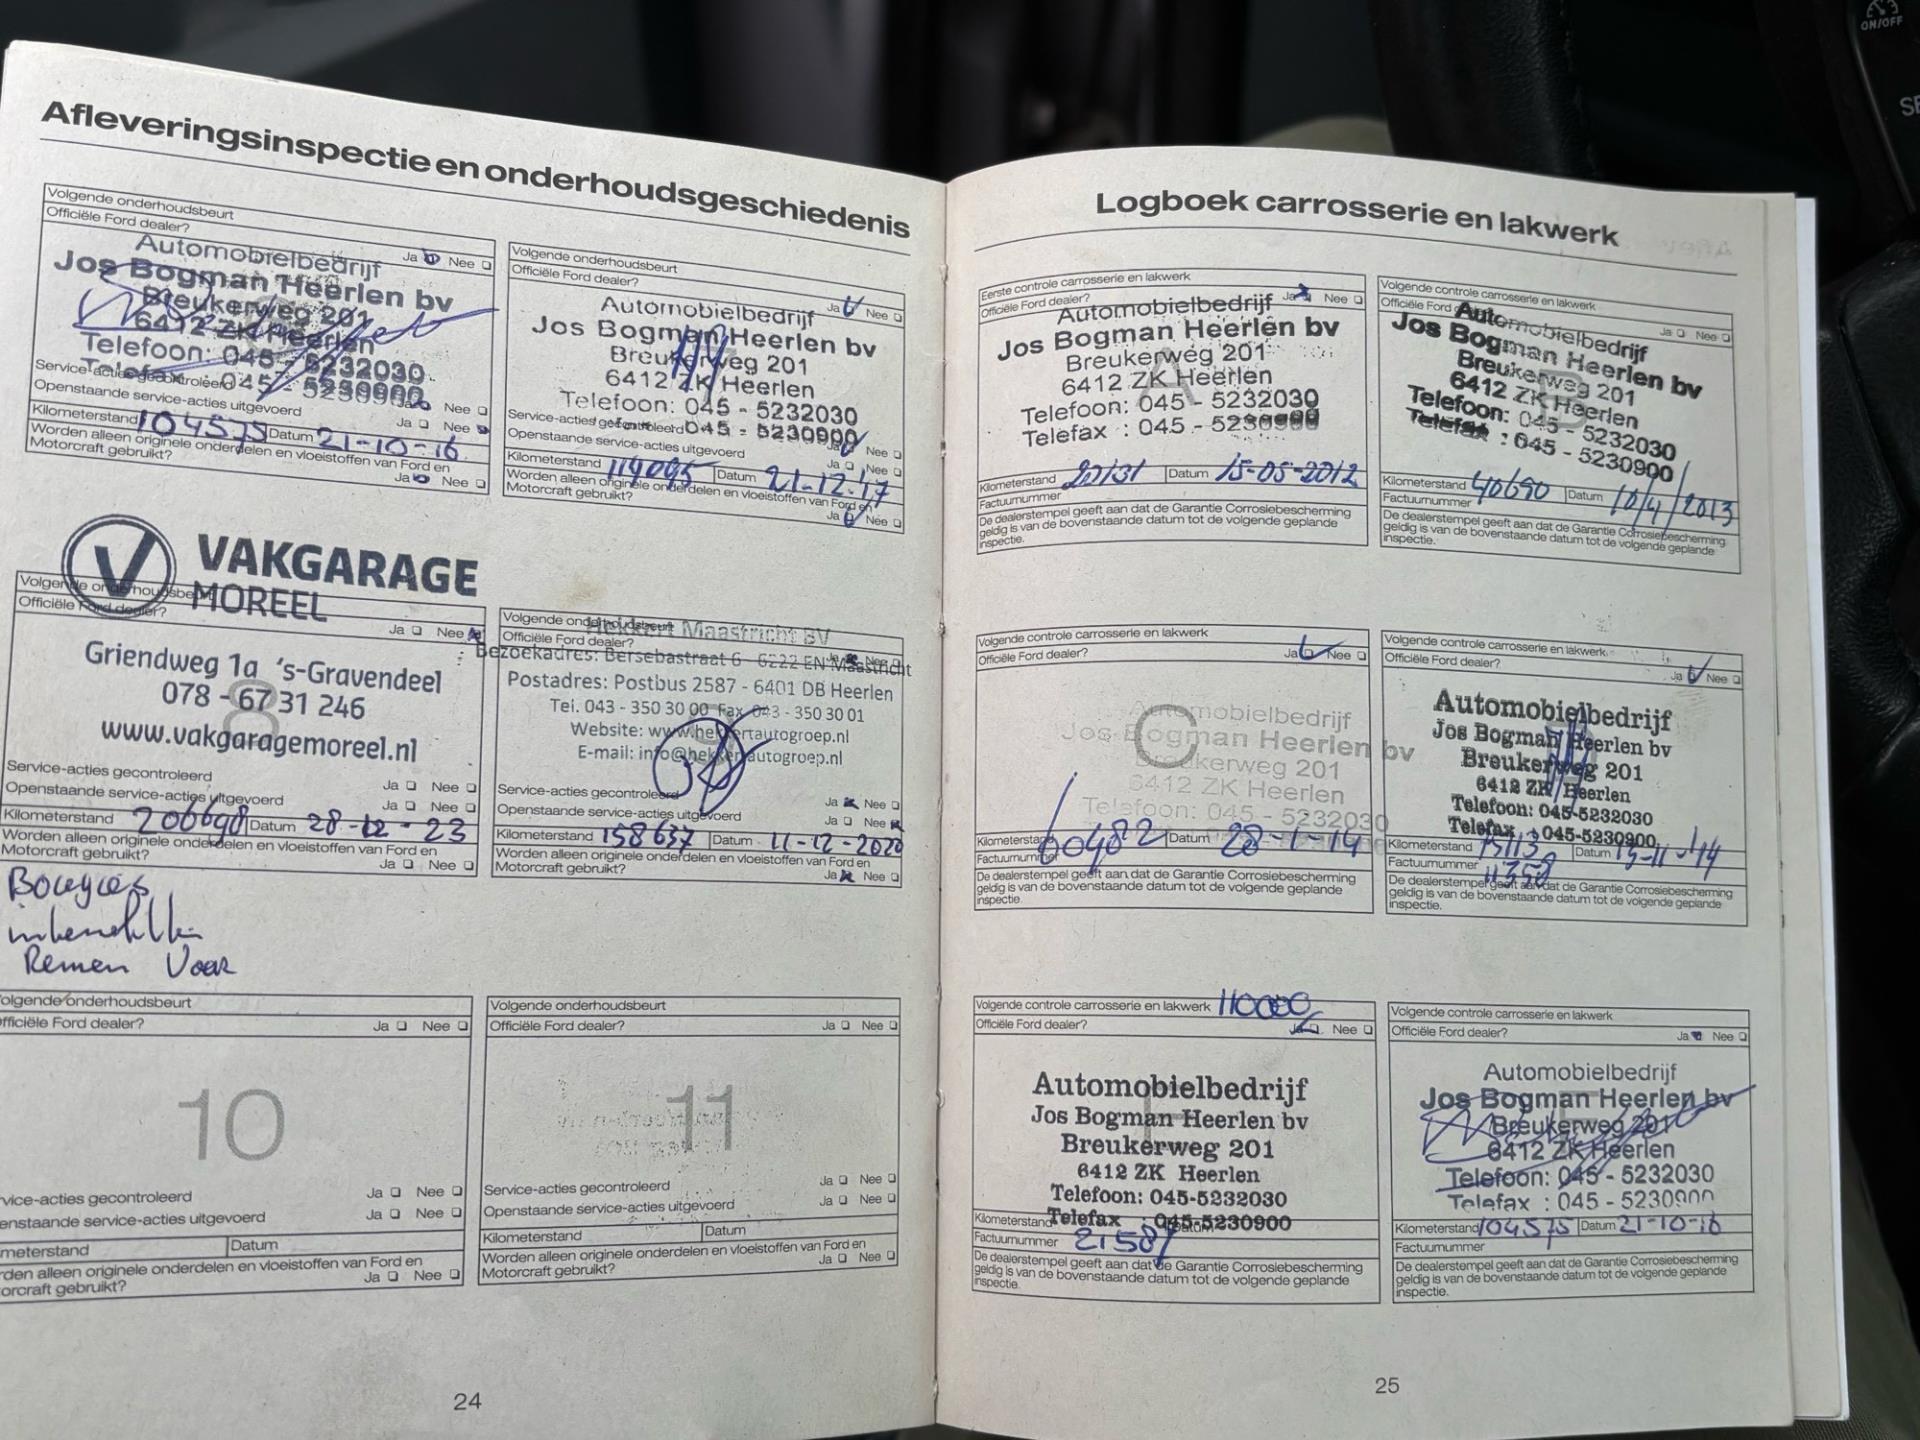 ON/OFF
Afleveringsinspectie en onderhoudsgeschiedenis
Volgende onderhoudsbeurt
Officiële Ford dealer?
Ja Nee
Automobielbedrijf
Jos Bogman Heerlen bv
Breukerweg 201
6412 ZK Heerlen
Telefoon: 045 - 5232030
Telefax : 045 - 5230900
Service-acties gecontroleerd
Ja Nee
Openstaande service-acties uitgevoerd
Ja Nee
Kilometerstand 104575 Datum 21-10-16
Worden alleen originele onderdelen en vloeistoffen van Ford en
Motorcraft gebruikt?
Ja Nee
Volgende onderhoudsbeurt
Officiële Ford dealer?
Ja Nee
Automobielbedrijf
Jos Bogman Heerlen bv
Breukerweg 201
6412 ZK Heerlen
Telefoon: 045 - 5232030
045 - 5230900
Service-acties gecontroleerd
Ja Nee
Openstaande service-acties uitgevoerd
Ja Nee
Kilometerstand 119095 Datum 21-12-'17
Worden alleen originele onderdelen en vloeistoffen van Ford en
Motorcraft gebruikt?
Ja Nee
VAKGARAGE
MOREEL
Volgende onderhoudsbeurt
Officiële Ford dealer?
Ja Nee
8
Griendweg 1a 's-Gravendeel
078 - 67 31 246
www.vakgaragemoreel.nl
Service-acties gecontroleerd
Ja Nee
Openstaande service-acties uitgevoerd
Ja Nee
Kilometerstand 206698 Datum 28-12-23
Worden alleen originele onderdelen en vloeistoffen van Ford en
Motorcraft gebruikt?
Ja Nee
Bougies
Remen Voor
Volgende onderhoudsbeurt
Officiële Ford dealer?
Ja Nee
Hekkert Maastricht BV
Bezoekadres: Bersebastraat 6 - 6222 EN Maastricht
Postadres: Postbus 2587 - 6401 DB Heerlen
Tel. 043 - 350 30 00 Fax 043 - 350 30 01
Website: www.hekkertautogroep.nl
E-mail: info@hekkertautogroep.nl
Service-acties gecontroleerd
Ja Nee
Openstaande service-acties uitgevoerd
Ja Nee
Kilometerstand 158637 Datum 11-12-2020
Worden alleen originele onderdelen en vloeistoffen van Ford en
Motorcraft gebruikt?
Ja Nee
olgende onderhoudsbeurt
fficiële Ford dealer?
Ja Nee
10
vice-acties gecontroleerd
Ja Nee
enstaande service-acties uitgevoerd
Ja Nee
meterstand Datum
rden alleen originele onderdelen en vloeistoffen van Ford en
orcraft gebruikt?
Ja Nee
Volgende onderhoudsbeurt
Officiële Ford dealer?
Ja Nee
11
Service-acties gecontroleerd
Ja Nee
Openstaande service-acties uitgevoerd
Ja Nee
Kilometerstand Datum
Worden alleen originele onderdelen en vloeistoffen van Ford en
Motorcraft gebruikt?
Ja Nee
24
Logboek carrosserie en lakwerk
Eerste controle carrosserie en lakwerk
Officiële Ford dealer?
Ja Nee
A
Automobielbedrijf
Jos Bogman Heerlen bv
Breukerweg 201
6412 ZK Heerlen
Telefoon: 045 - 5232030
Telefax : 045 - 5230900
Kilometerstand 20131 Datum 15-05-2012
Factuurnummer
De dealerstempel geeft aan dat de Garantie Corrosiebescherming
geldig is van de bovenstaande datum tot de volgende geplande
inspectie.
Volgende controle carrosserie en lakwerk
Officiële Ford
Ja Nee
B
Automobielbedrijf
Jos Bogman Heerlen bv
Breukerweg 201
6412 ZK Heerlen
Telefoon: 045 - 5232030
Telefax : 045 - 5230900
Kilometerstand 40690 Datum 10/4/2013
Factuurnummer
De dealerstempel geeft aan dat de Garantie Corrosiebescherming
geldig is van de bovenstaande datum tot de volgende geplande
inspectie.
Volgende controle carrosserie en lakwerk
Officiële Ford dealer?
Ja Nee
C
Automobielbedrijf
Jos Bogman Heerlen bv
Breukerweg 201
6412 ZK Heerlen
Telefoon: 045 - 5232030
Kilometerstand 60982 Datum 28-1-14
Factuurnummer
De dealerstempel geeft aan dat de Garantie Corrosiebescherming
geldig is van de bovenstaande datum tot de volgende geplande
inspectie.
Volgende controle carrosserie en lakwerk
Officiële Ford dealer?
Ja Nee
Automobielbedrijf
Jos Bogman Heerlen bv
Breukerweg 201
6412 ZK Heerlen
Telefoon: 045-5232030
Telefax : 045-5230900
Kilometerstand 75113 Datum
Factuurnummer 11358
De dealerstempel geeft aan dat de Garantie Corrosiebescherming
geldig is van de bovenstaande datum tot de volgende geplande
inspectie.
Volgende controle carrosserie en lakwerk
Officiële Ford dealer?
Ja Nee
Automobielbedrijf
Jos Bogman Heerlen bv
Breukerweg 201
6412 ZK Heerlen
Telefoon: 045-5232030
Telefax : 045-5230900
Kilometerstand Datum
Factuurnummer 21587
De dealerstempel geeft aan dat de Garantie Corrosiebescherming
geldig is van de bovenstaande datum tot de volgende geplande
inspectie.
Volgende controle carrosserie en lakwerk
Officiële Ford dealer?
Ja Nee
Automobielbedrijf
Jos Bogman Heerlen bv
Breukerweg 201
6412 ZK Heerlen
Telefoon: 045 - 5232030
Telefax : 045 - 5230900
Kilometerstand 104575 Datum 21-10-16
Factuurnummer
De dealerstempel geeft aan dat de Garantie Corrosiebescherming
geldig is van de bovenstaande datum tot de volgende geplande
inspectie.
25